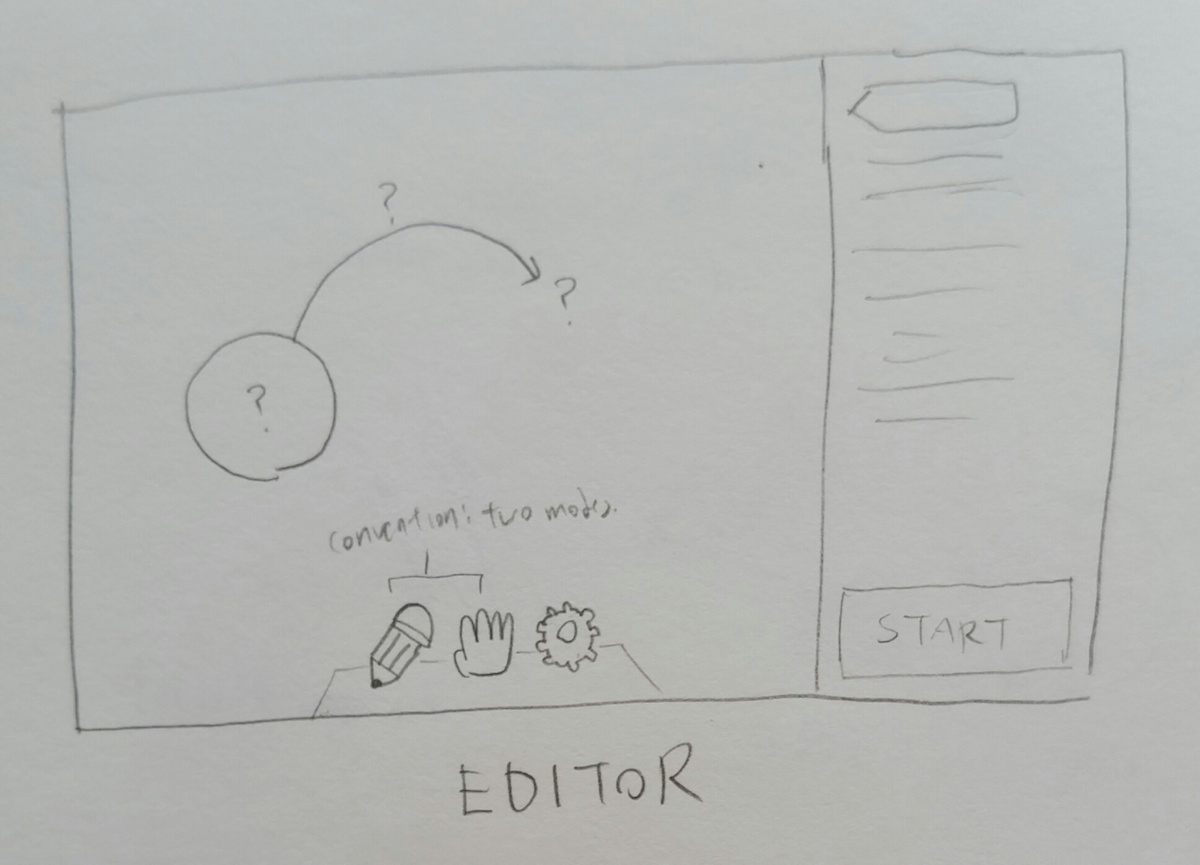 ?
?
?
convention: two modes.
START
EDITOR